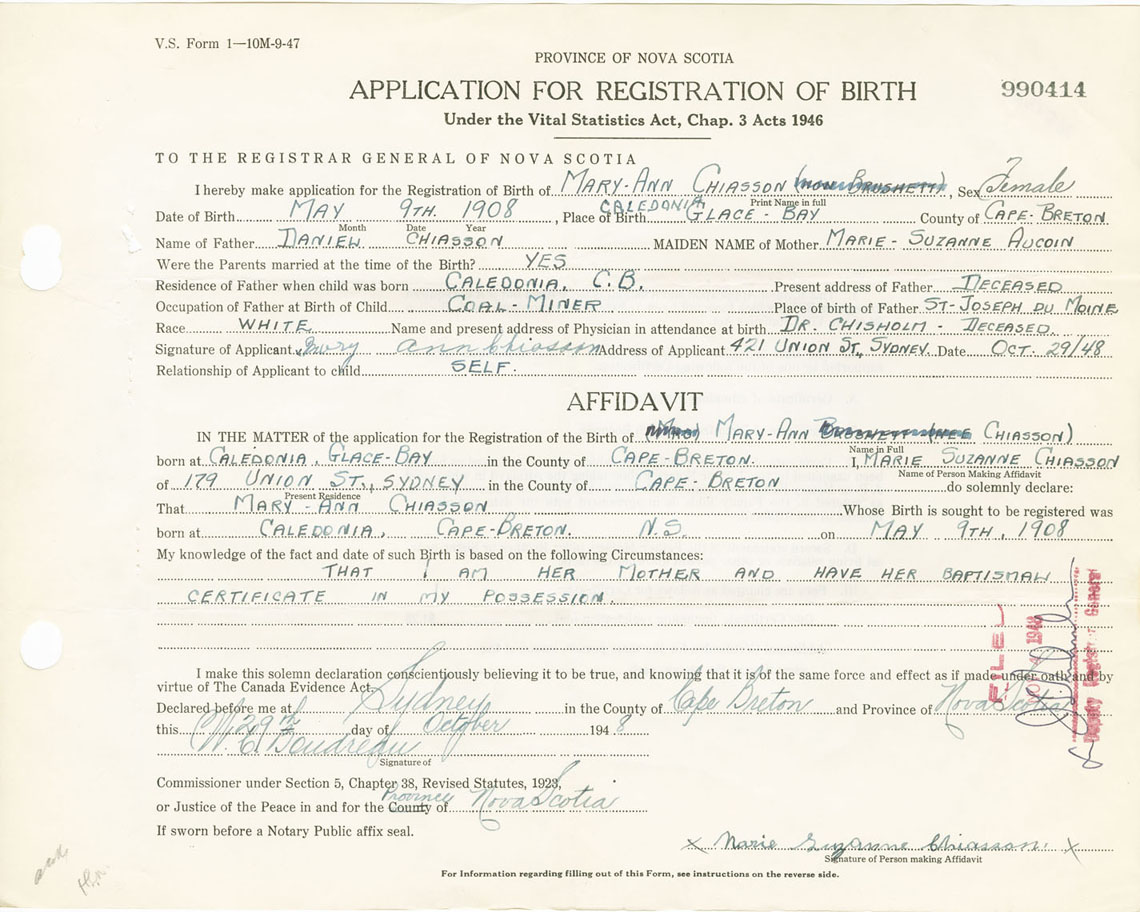 V.S. Form 1—10M-9-47
PROVINCE OF NOVA SCOTIA
APPLICATION FOR REGISTRATION OF BIRTH 990414
Under the Vital Statistics Act, Chap. 3 Acts 1946
TO THE REGISTRAR GENERAL OF NOVA SCOTIA
I hereby make application for the Registration of Birth of MARY-ANN CHIASSON (NOW BRUSHETT), Sex Female
Print Name in full
Date of Birth MAY 9TH. 1908, Place of Birth CALEDONIA GLACE-BAY County of CAPE-BRETON.
Month Date Year
Name of Father DANIEL CHIASSON MAIDEN NAME of Mother MARIE-SUZANNE AUCOIN
Were the Parents married at the time of the Birth? YES
Residence of Father when child was born CALEDONIA, C.B. Present address of Father DECEASED
Occupation of Father at Birth of Child COAL-MINER Place of birth of Father ST-JOSEPH DU MOINE
Race WHITE Name and present address of Physician in attendance at birth DR. CHISHOLM - DECEASED.
Signature of Applicant Mary Ann Chiasson Address of Applicant 421 UNION ST., SYDNEY. Date OCT. 29/48
Relationship of Applicant to child SELF.
AFFIDAVIT
IN THE MATTER of the application for the Registration of the Birth of (MRS) MARY-ANN BRUSHETT (NEE CHIASSON)
Name in Full
born at CALEDONIA, GLACE-BAY in the County of CAPE-BRETON. I, MARIE SUZANNE CHIASSON
Name of Person Making Affidavit
of 179 UNION ST., SYDNEY in the County of CAPE-BRETON do solemnly declare:
Present Residence
That MARY-ANN CHIASSON Whose Birth is sought to be registered was
born at CALEDONIA, CAPE-BRETON. N.S. on MAY 9TH, 1908
My knowledge of the fact and date of such Birth is based on the following Circumstances:
THAT I AM HER MOTHER AND HAVE HER BAPTISMAL
CERTIFICATE IN MY POSSESSION.
I make this solemn declaration conscientiously believing it to be true, and knowing that it is of the same force and effect as if made under oath and by
virtue of The Canada Evidence Act.
Declared before me at Sydney in the County of Cape Breton and Province of Nova Scotia
this 29th day of October 1948
W. E. Boudreau
Signature of
Commissioner under Section 5, Chapter 38, Revised Statutes, 1923,
or Justice of the Peace in and for the County of Province Nova Scotia
If sworn before a Notary Public affix seal.
x Marie Suzanne Chiasson x
Signature of Person making Affidavit
For Information regarding filling out of this Form, see instructions on the reverse side.
FILED
1948
Deputy Registrar General